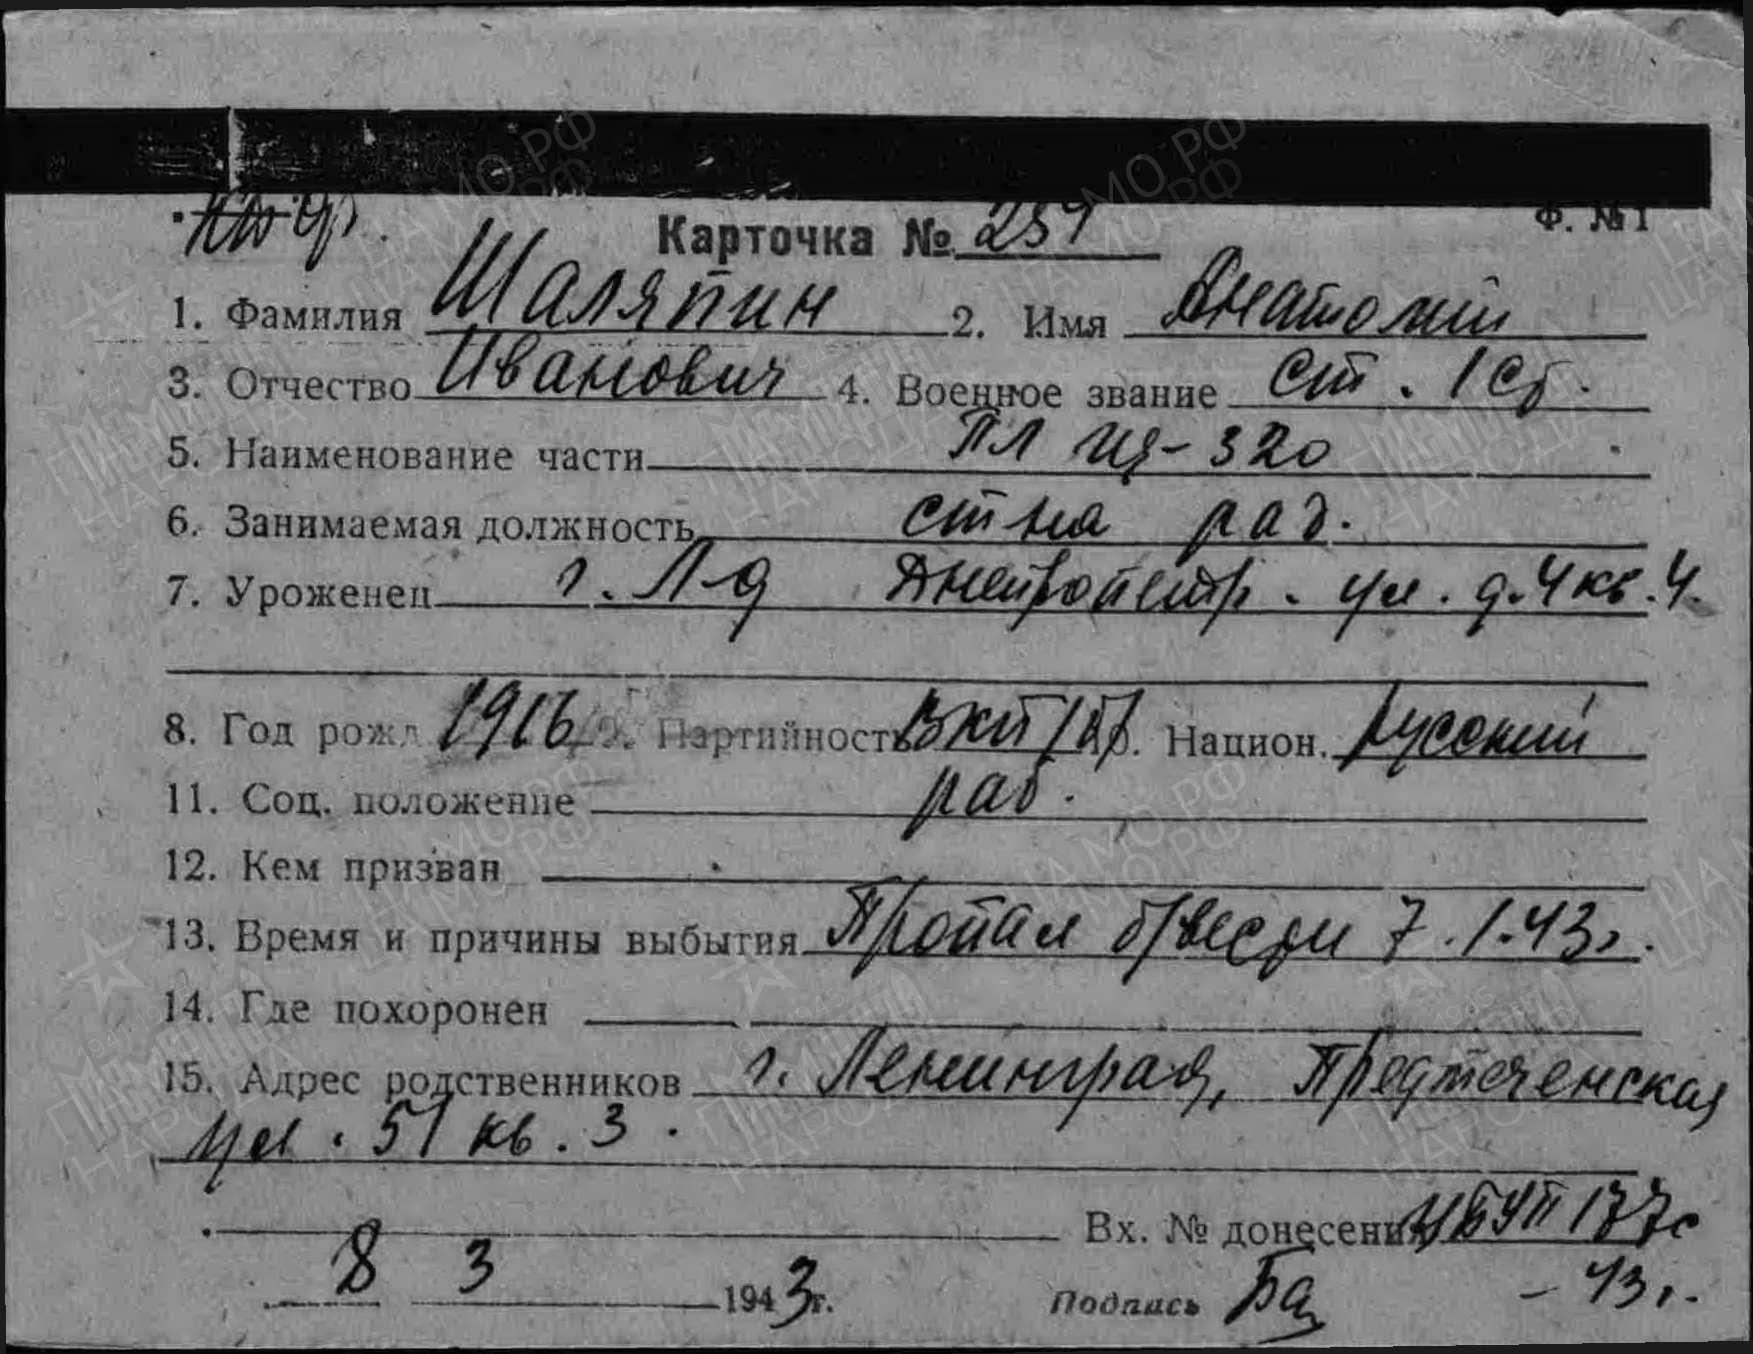 Ф. № 1
Карточка № 259
1. Фамилия Шаляпин 2. Имя Анатолий
3. Отчество Иванович 4. Военное звание ст. 1 ст.
5. Наименование части ПЛ Щ-320
6. Занимаемая должность рад.
7. Уроженец г. Л-д Днепропетр. ул. д. 4 кв. 4.
8. Год рожд 1916 9. Партийность ВКП/б/ Национ. русский
11. Соц. положение раб.
12. Кем призван
13. Время и причины выбытия Пропал б/вести 7.1.43г.
14. Где похоронен
15. Адрес родственников г. Ленинград, Предтеченская
ул. 51 кв. 3.
Вх. № донесения 177с
8 3 1943г. Подпись - 43г.